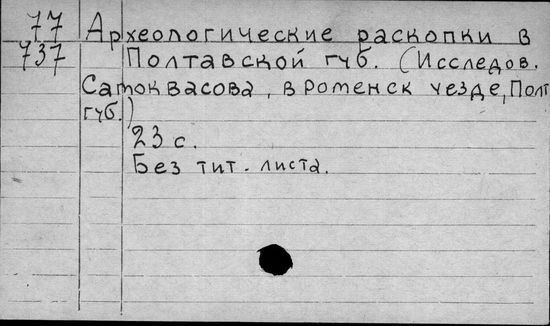 77 Археологические раскопки в
737 Полтавской губ. (Исследов.
Самоквасова, в Роменск уезде, Полт
губ.)
23 с.
Без тит. листа.